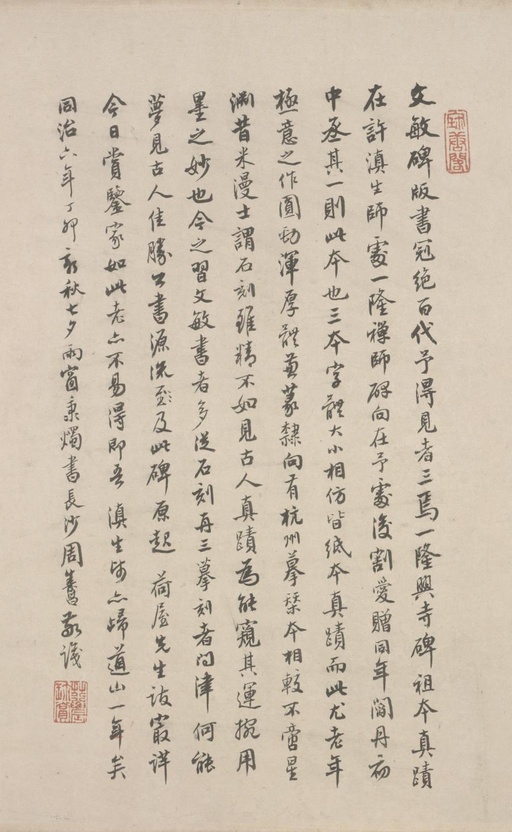 文敏碑版書冠絕百代予得見者三焉一隆興寺碑祖本真蹟
在許滇生師處一隆禪師碑向在予處後割愛贈同年閻丹初
中丞其一則此本也三本字體大小相仿皆紙本真蹟而此尤老年
極意之作圓勁渾厚體兼篆隸向有杭州摹棊本相較不啻星
淵昔米漫士謂石刻雖精不如見古人真蹟為能窺其運捥用
墨之妙也今之習文敏書者多從石刻再三摹刻者問津何能
夢見古人佳勝公書源流暨及此碑原起荷屋先生語審詳
今日賞鑒家如此老亦不易得即吾滇生師亦歸道山一年矣
同治六年丁卯新秋七夕雨窗秉燭書長沙周壽昌敬識